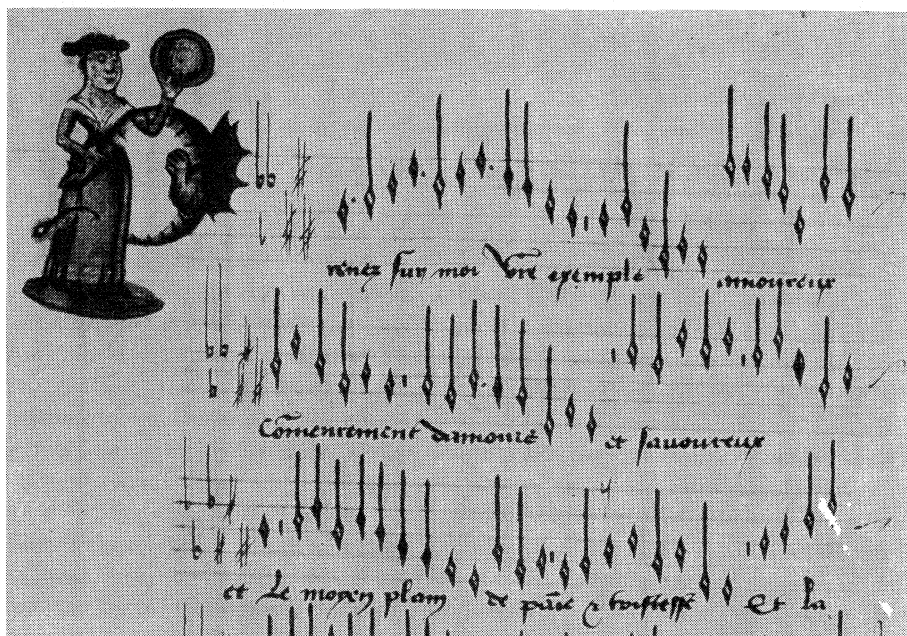 renez sur moi Vr̃e exemple amoureux
Cōmencement damours et sauoureux
et Le moyen plain de paīe & tristesse Et la